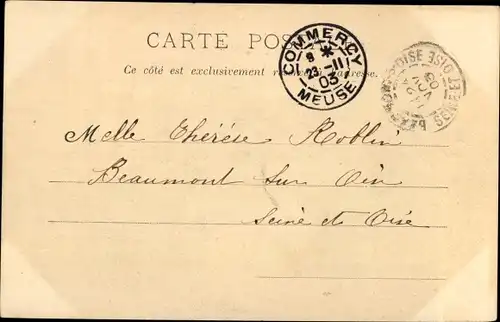 CARTE POSTALE
Ce côté est exclusivement réservé à l'adresse.
COMMERCY
8 *
23 -11
03
MEUSE
BEAUMONT-S-OISE
24
NOV
03
SEINE ET OISE
Melle Thérèse Roblin
Beaumont Sur Oise
Seine et Oise